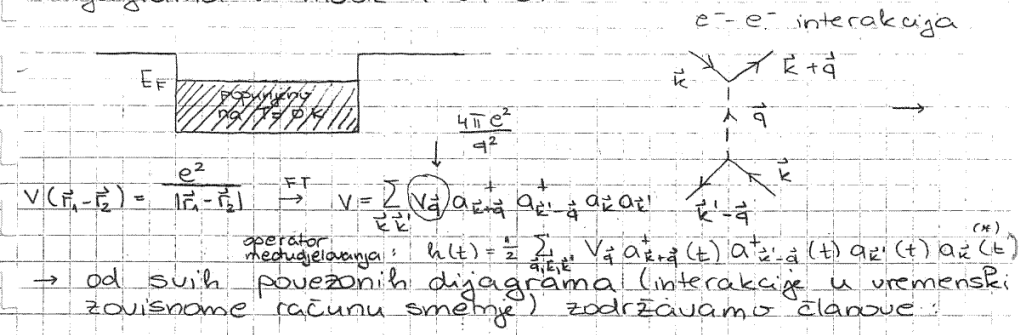 e⁻- e⁻ interakcija
E_F
popunjeno
na T=0K
\vec{k}
\vec{k}+\vec{q}
\vec{q}
→
\vec{k}
\vec{k}'-\vec{q}
\frac{4πe^2}{q^2}
V(\vec{r}_1-\vec{r}_2) = \frac{e^2}{|\vec{r}_1-\vec{r}_2|} \xrightarrow{FT} V = \sum_{\vec{k}\vec{k}'} V_{\vec{q}} a^+_{\vec{k}+\vec{q}} a^+_{\vec{k}'-\vec{q}} a_{\vec{k}} a_{\vec{k}'}
operator
međudjelovanja: h(t) = \frac{1}{2} \sum_{\vec{q},\vec{k},\vec{k}'} V_{\vec{q}} a^+_{\vec{k}+\vec{q}}(t) a^+_{\vec{k}'-\vec{q}}(t) a_{\vec{k}'}(t) a_{\vec{k}}(t) (*)
→ od svih povezanih dijagrama (interakcije u vremenski
zavisnome računu smetnje) zadržavamo članove: